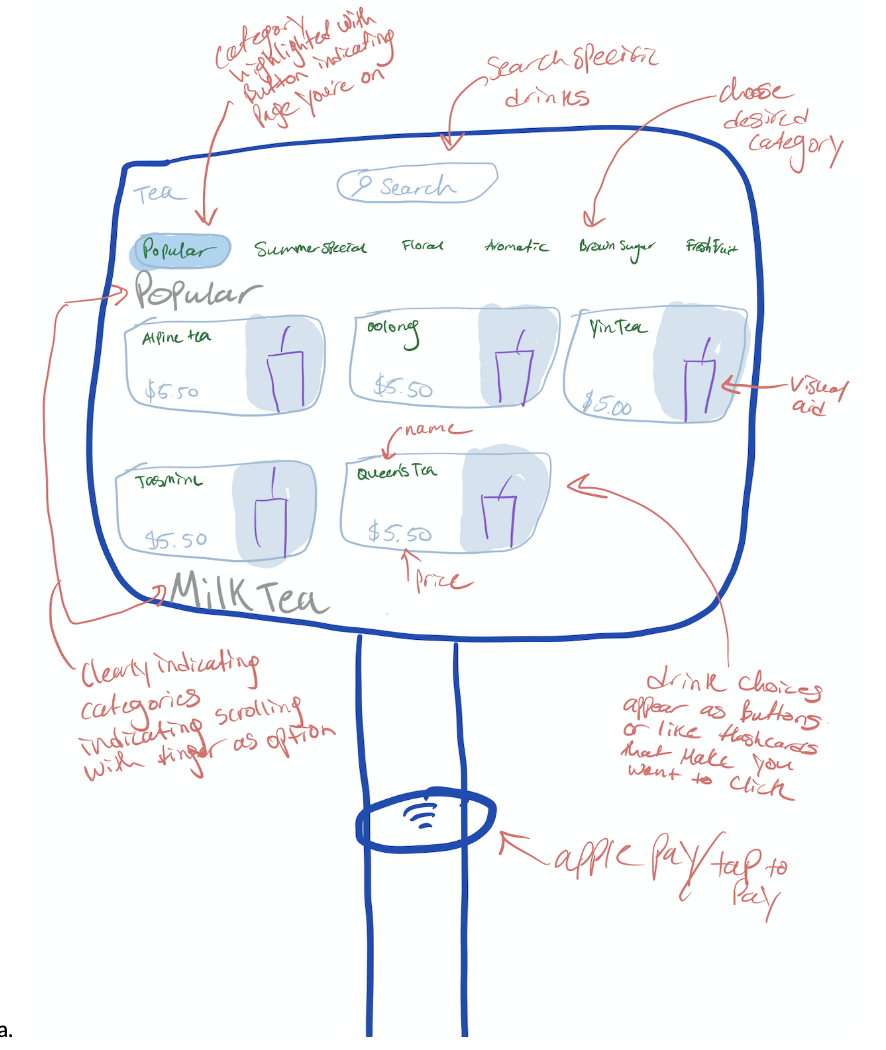 Category
highlighted with
Button indicating
Page you're on
Search Specific
drinks
choose
desired
category
Tea
Search
Popular
Summer Special
Floral
Aromatic
Brown Sugar
Fresh Fruit
Popular
Alpine tea
$5.50
oolong
$5.50
Yin Tea
$5.00
Visual
aid
name
Jasmine
$5.50
Queen's Tea
$5.50
Price
Milk Tea
Clearly indicating
categories
indicating scrolling
with finger as option
drink choices
appear as buttons
or like flashcards
that make you
want to click
apple pay/tap to
pay
a.